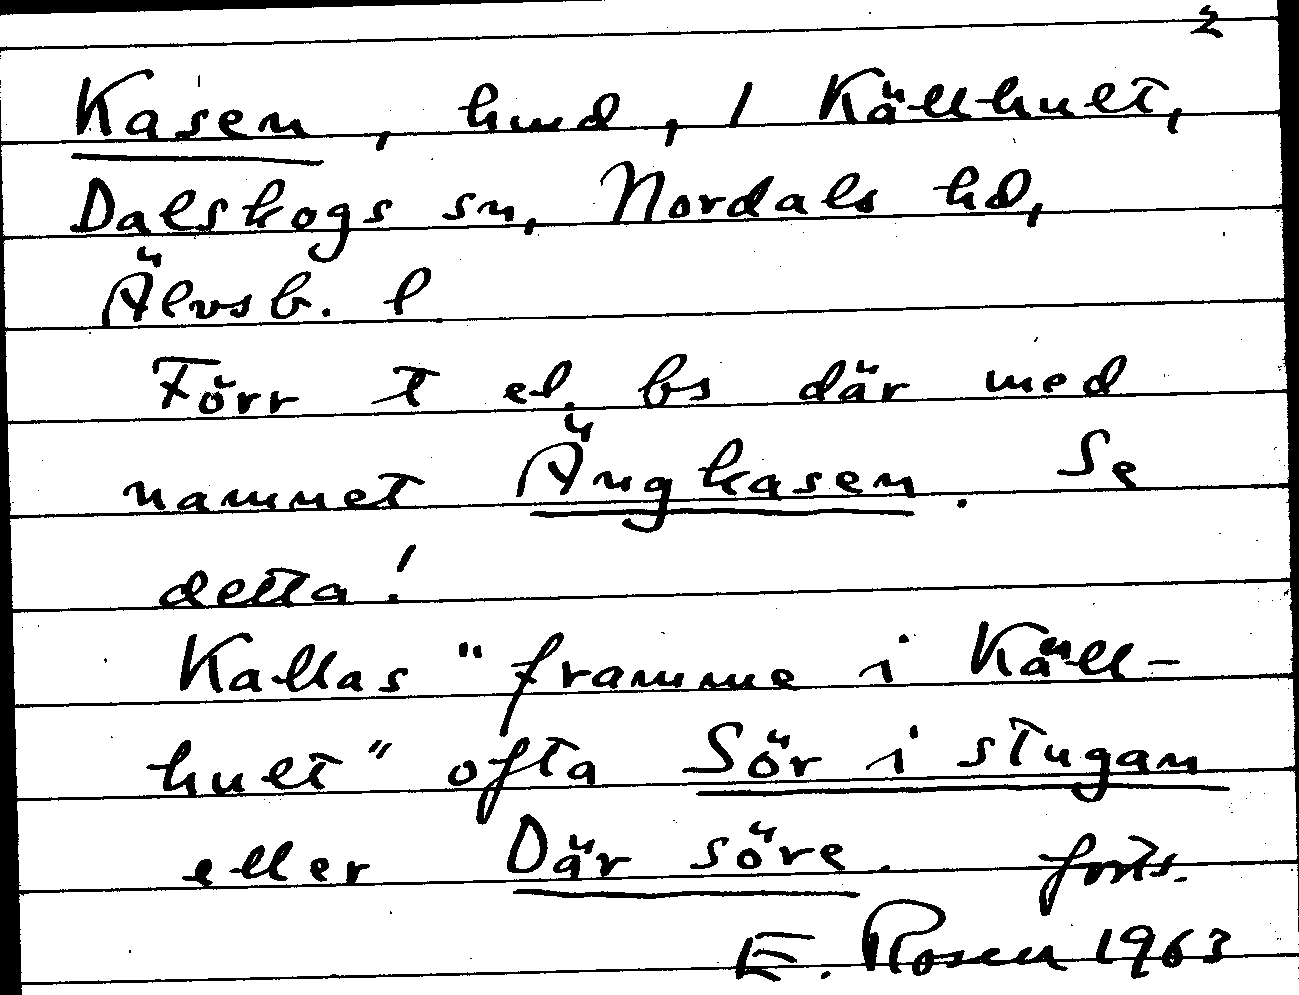 2
Kasen, hmd, 1 Källhult,
Dalskogs sn, Nordals hd,
Älvsb. l
Förr t el. bs där med
namnet Ängkasen. Se
detta!
Kallas "framme i Käll-
hult" ofta Sör i stugan
eller Där söre. forts.
E. Rosen 1963